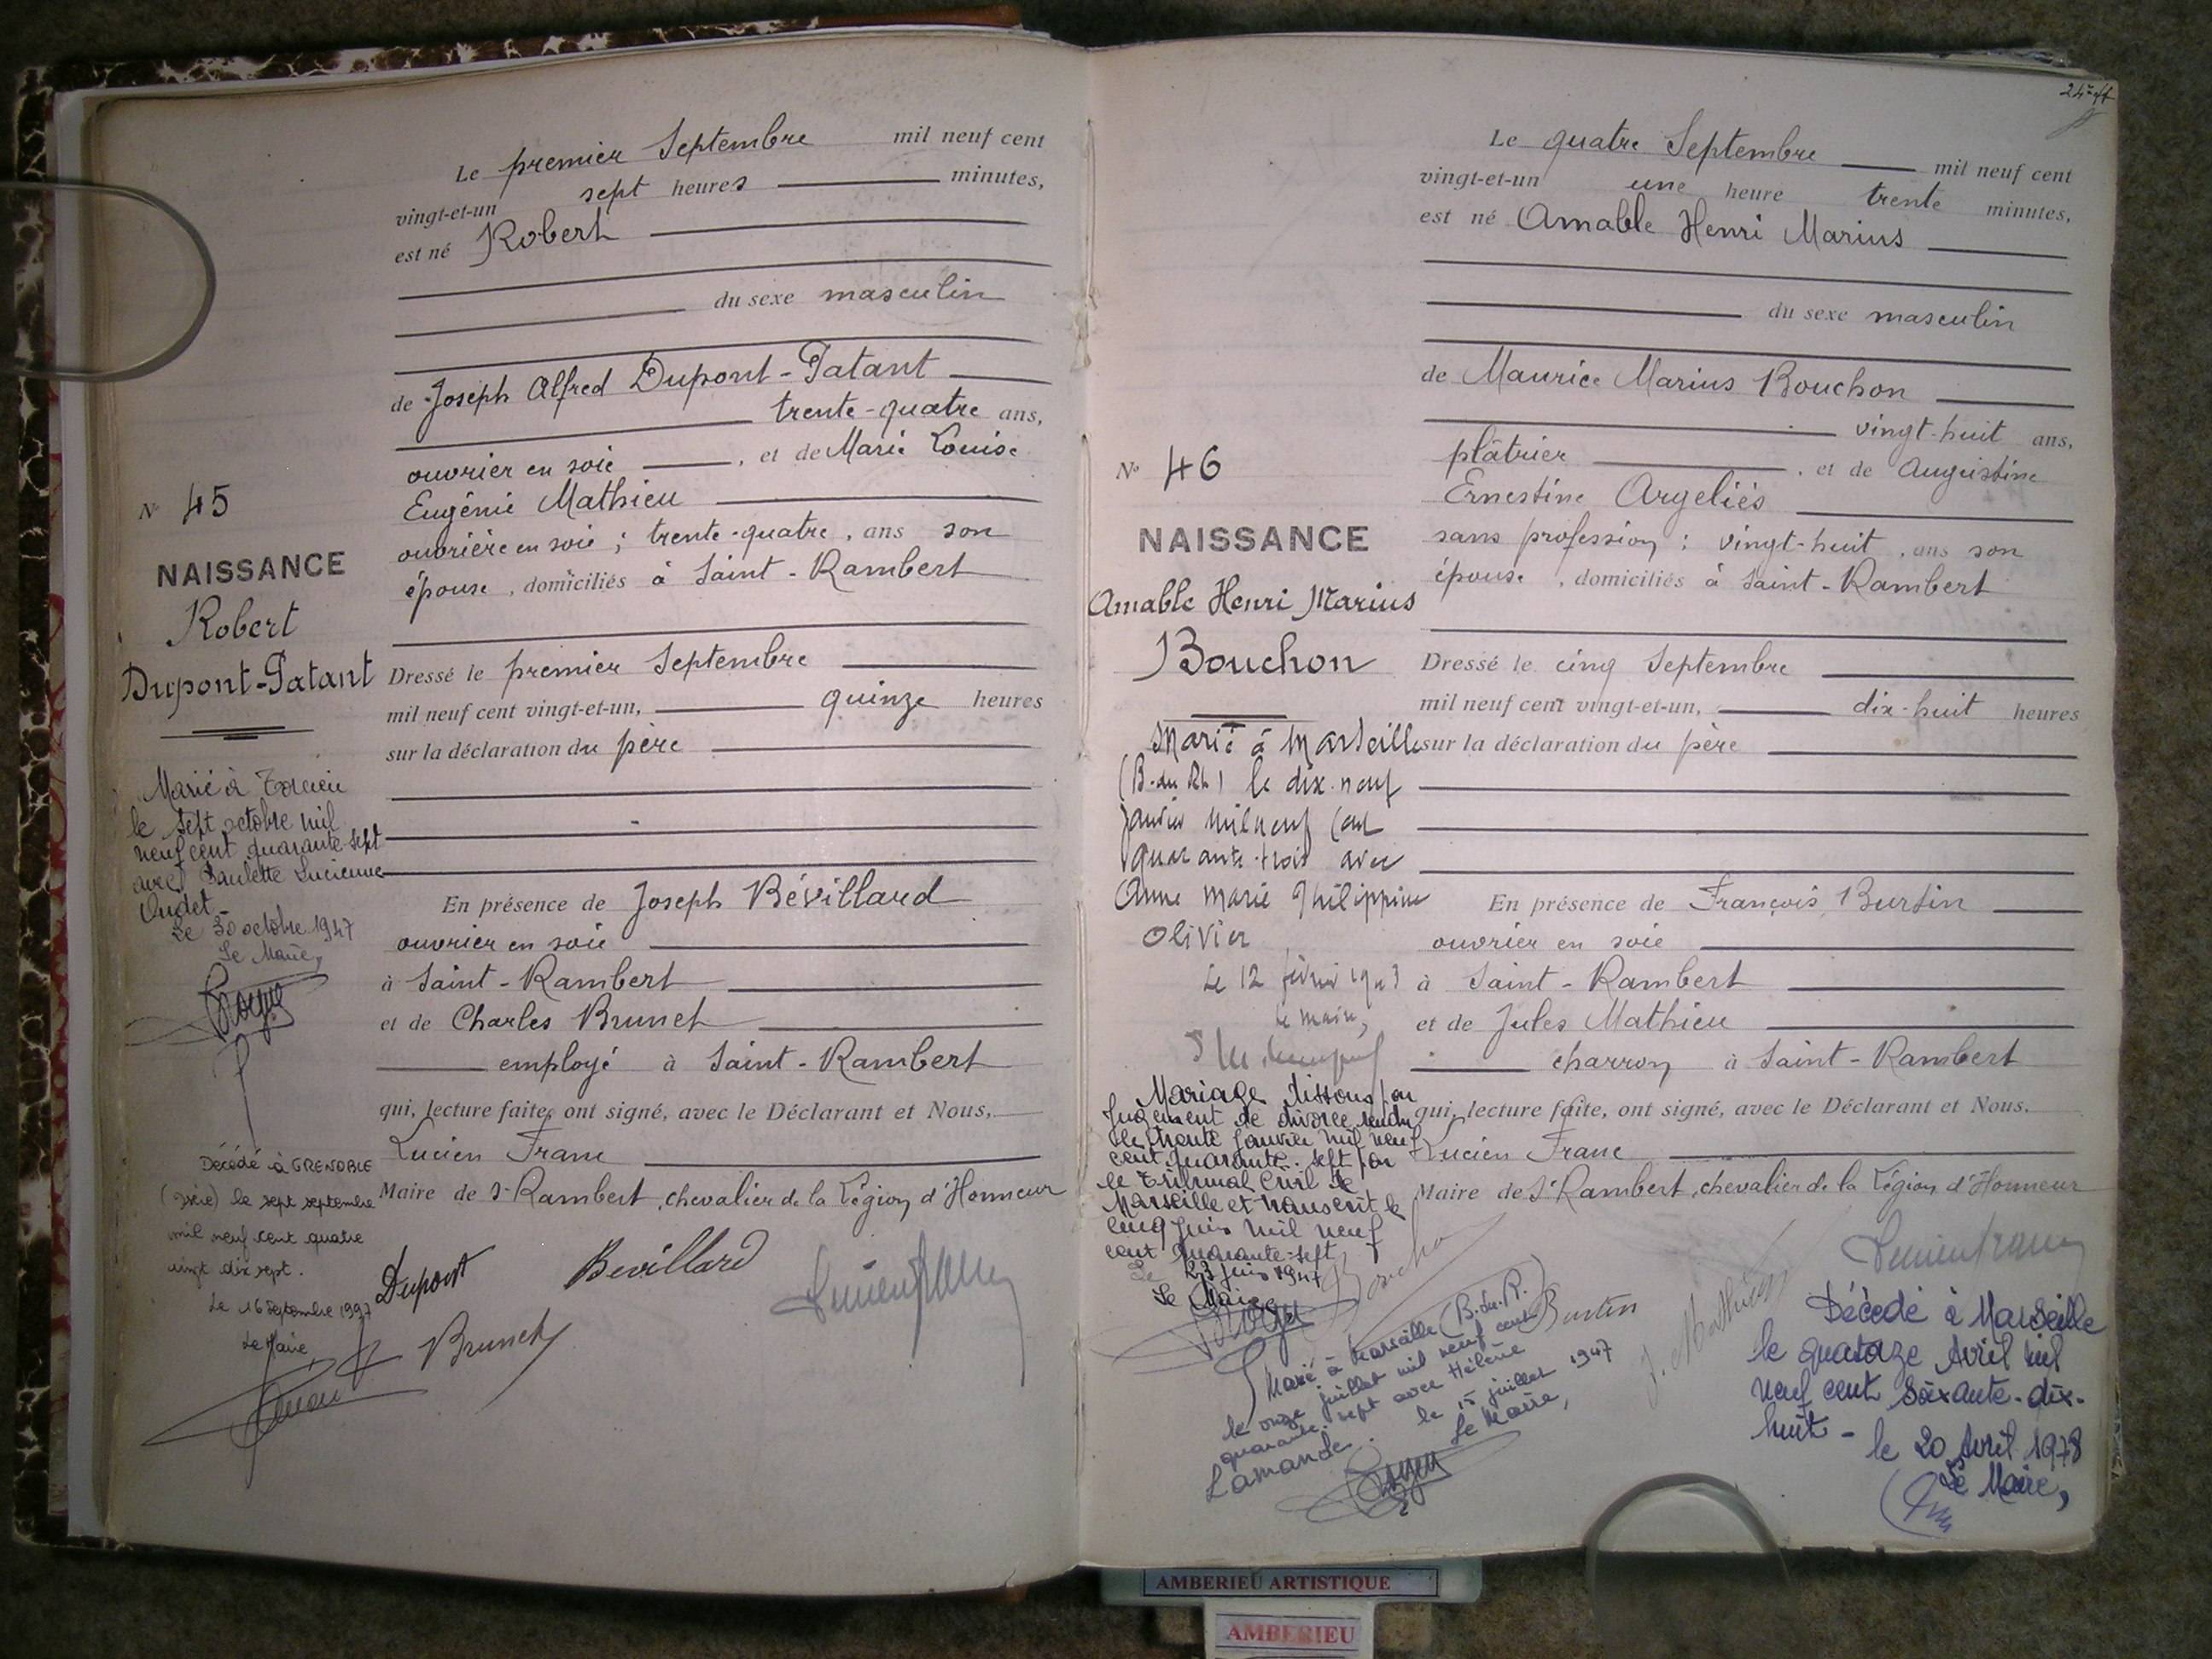 Le premier Septembre mil neuf cent
vingt-et-un sept heures minutes,
est né Robert
du sexe masculin
de Joseph Alfred Dupont-Patant
trente-quatre ans,
ouvrier en soie , et de Marie Louise
Eugénie Mathieu
ouvrière en soie ; trente-quatre , ans son
épouse , domiciliés à Saint-Rambert
Dressé le premier Septembre
mil neuf cent vingt-et-un, quinze heures
sur la déclaration du père
En présence de Joseph Bévillard
ouvrier en soie
à Saint-Rambert
et de Charles Brunet
employé à Saint-Rambert
qui, lecture faite, ont signé, avec le Déclarant et Nous,
Lucien Franc
Maire de St Rambert, chevalier de la Légion d'Honneur
Dupont Bevillard
Brunet
No 45
NAISSANCE
Robert
Dupont-Patant
Marié à Torcieu
le sept octobre mil
neuf cent quarante-sept
avec Paulette Lucienne
Oudet
Le 30 octobre 1947
Le Maire,
Décédé à GRENOBLE
(Isère) le sept septembre
mil neuf cent quatre
vingt dix sept.
Le 16 septembre 1997
Le Maire
Le quatre Septembre mil neuf cent
vingt-et-un une heure trente minutes,
est né Amable Henri Marius
du sexe masculin
de Maurice Marius Bouchon
vingt-huit ans,
plâtrier , et de Augustine
Ernestine Argeliés
sans profession ; vingt-huit , ans son
épouse , domiciliés à Saint-Rambert
Dressé le cinq Septembre
mil neuf cent vingt-et-un, dix-huit heures
sur la déclaration du père
En présence de François Burtin
ouvrier en soie
à Saint-Rambert
et de Jules Mathieu
charron à Saint-Rambert
qui, lecture faite, ont signé, avec le Déclarant et Nous.
Lucien Franc
Maire de St Rambert, chevalier de la Légion d'Honneur
No 46
NAISSANCE
Amable Henri Marius
Bouchon
Marié à Marseille
(B. du Rh) le dix-neuf
janvier mil neuf cent
quarante-trois avec
Anne Marie Philippine
Olivier
Le 12 février 1943
Le maire,
Mariage dissous par
jugement de divorce rendu
le trente janvier mil neuf
cent quarante-sept par
le Tribunal Civil de
Marseille et transcrit le
cinq juin mil neuf
cent quarante-sept
Le 23 juin 1947
Le Maire
Bouchon
Burtin
J. Mathieu
Marié à Marseille (B. du R.)
le onze juillet mil neuf cent
quarante-sept avec Hélène
Lamande. le 15 juillet 1947
Le Maire,
Décédé à Marseille
le quatorze Avril mil
neuf cent soixante-dix-
huit -
le 20 Avril 1978
Le Maire,
AMBERIEU ARTISTIQUE
AMBERIEU